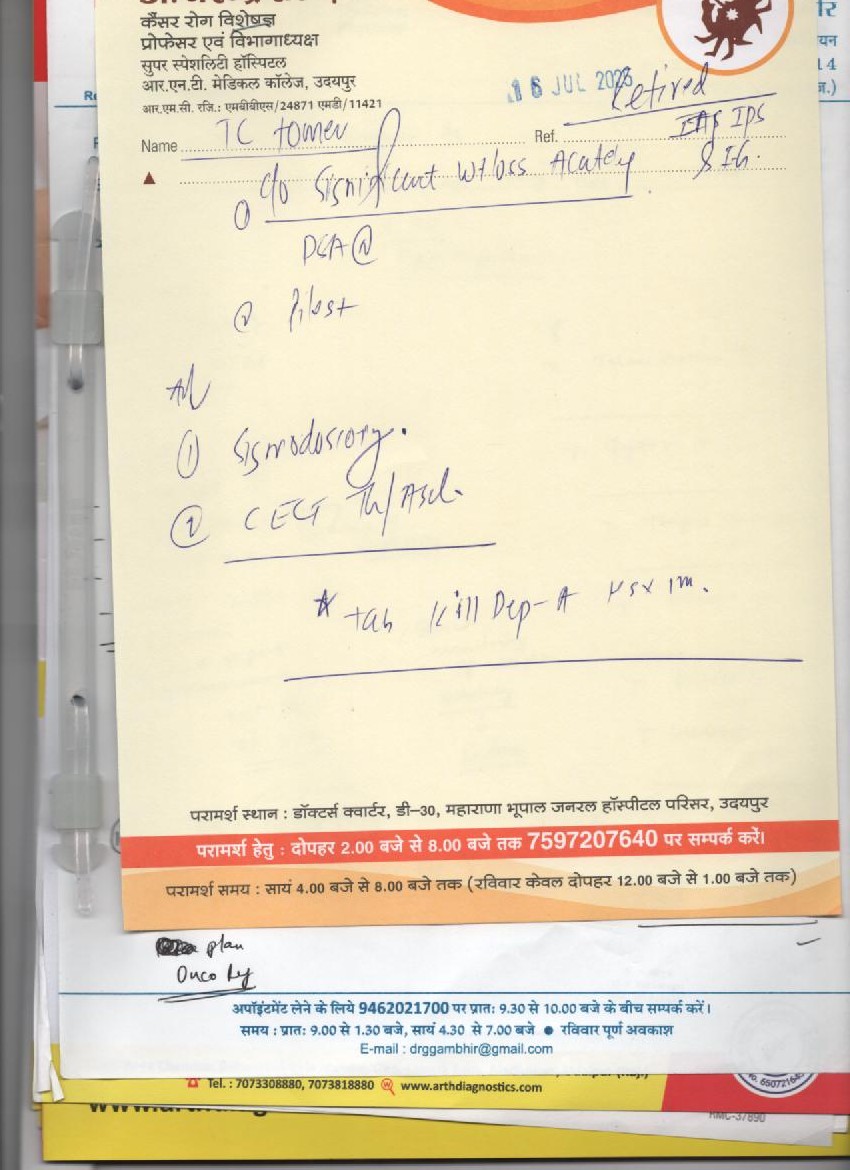 कैंसर रोग विशेषज्ञ
प्रोफेसर एवं विभागाध्यक्ष
सुपर स्पेशलिटी हॉस्पिटल
आर.एन.टी. मेडिकल कॉलेज, उदयपुर
आर.एम.सी. रजि.: एमबीबीएस/24871 एमडी/11421
16 JUL 2025
Retired
IPS
& IG.
Name TC tomer Ref.
① c/o Significant wt loss Acutely
②
Adv
① Sigmodoscopy.
② CECT Th/Abd.
* Tab Kill Dep-A x 1m.
परामर्श स्थान : डॉक्टर्स क्वार्टर, डी–30, महाराणा भूपाल जनरल हॉस्पीटल परिसर, उदयपुर
परामर्श हेतु : दोपहर 2.00 बजे से 8.00 बजे तक 7597207640 पर सम्पर्क करें।
परामर्श समय : सायं 4.00 बजे से 8.00 बजे तक (रविवार केवल दोपहर 12.00 बजे से 1.00 बजे तक)
plan
Onco
अपॉइंटमेंट लेने के लिये 9462021700 पर प्रात: 9.30 से 10.00 बजे के बीच सम्पर्क करें।
समय : प्रात: 9.00 से 1.30 बजे, सायं 4.30 से 7.00 बजे ● रविवार पूर्ण अवकाश
E-mail : drggambhir@gmail.com
Tel. : 7073308880, 7073818880 www.arthdiagnostics.com
RMC-37890